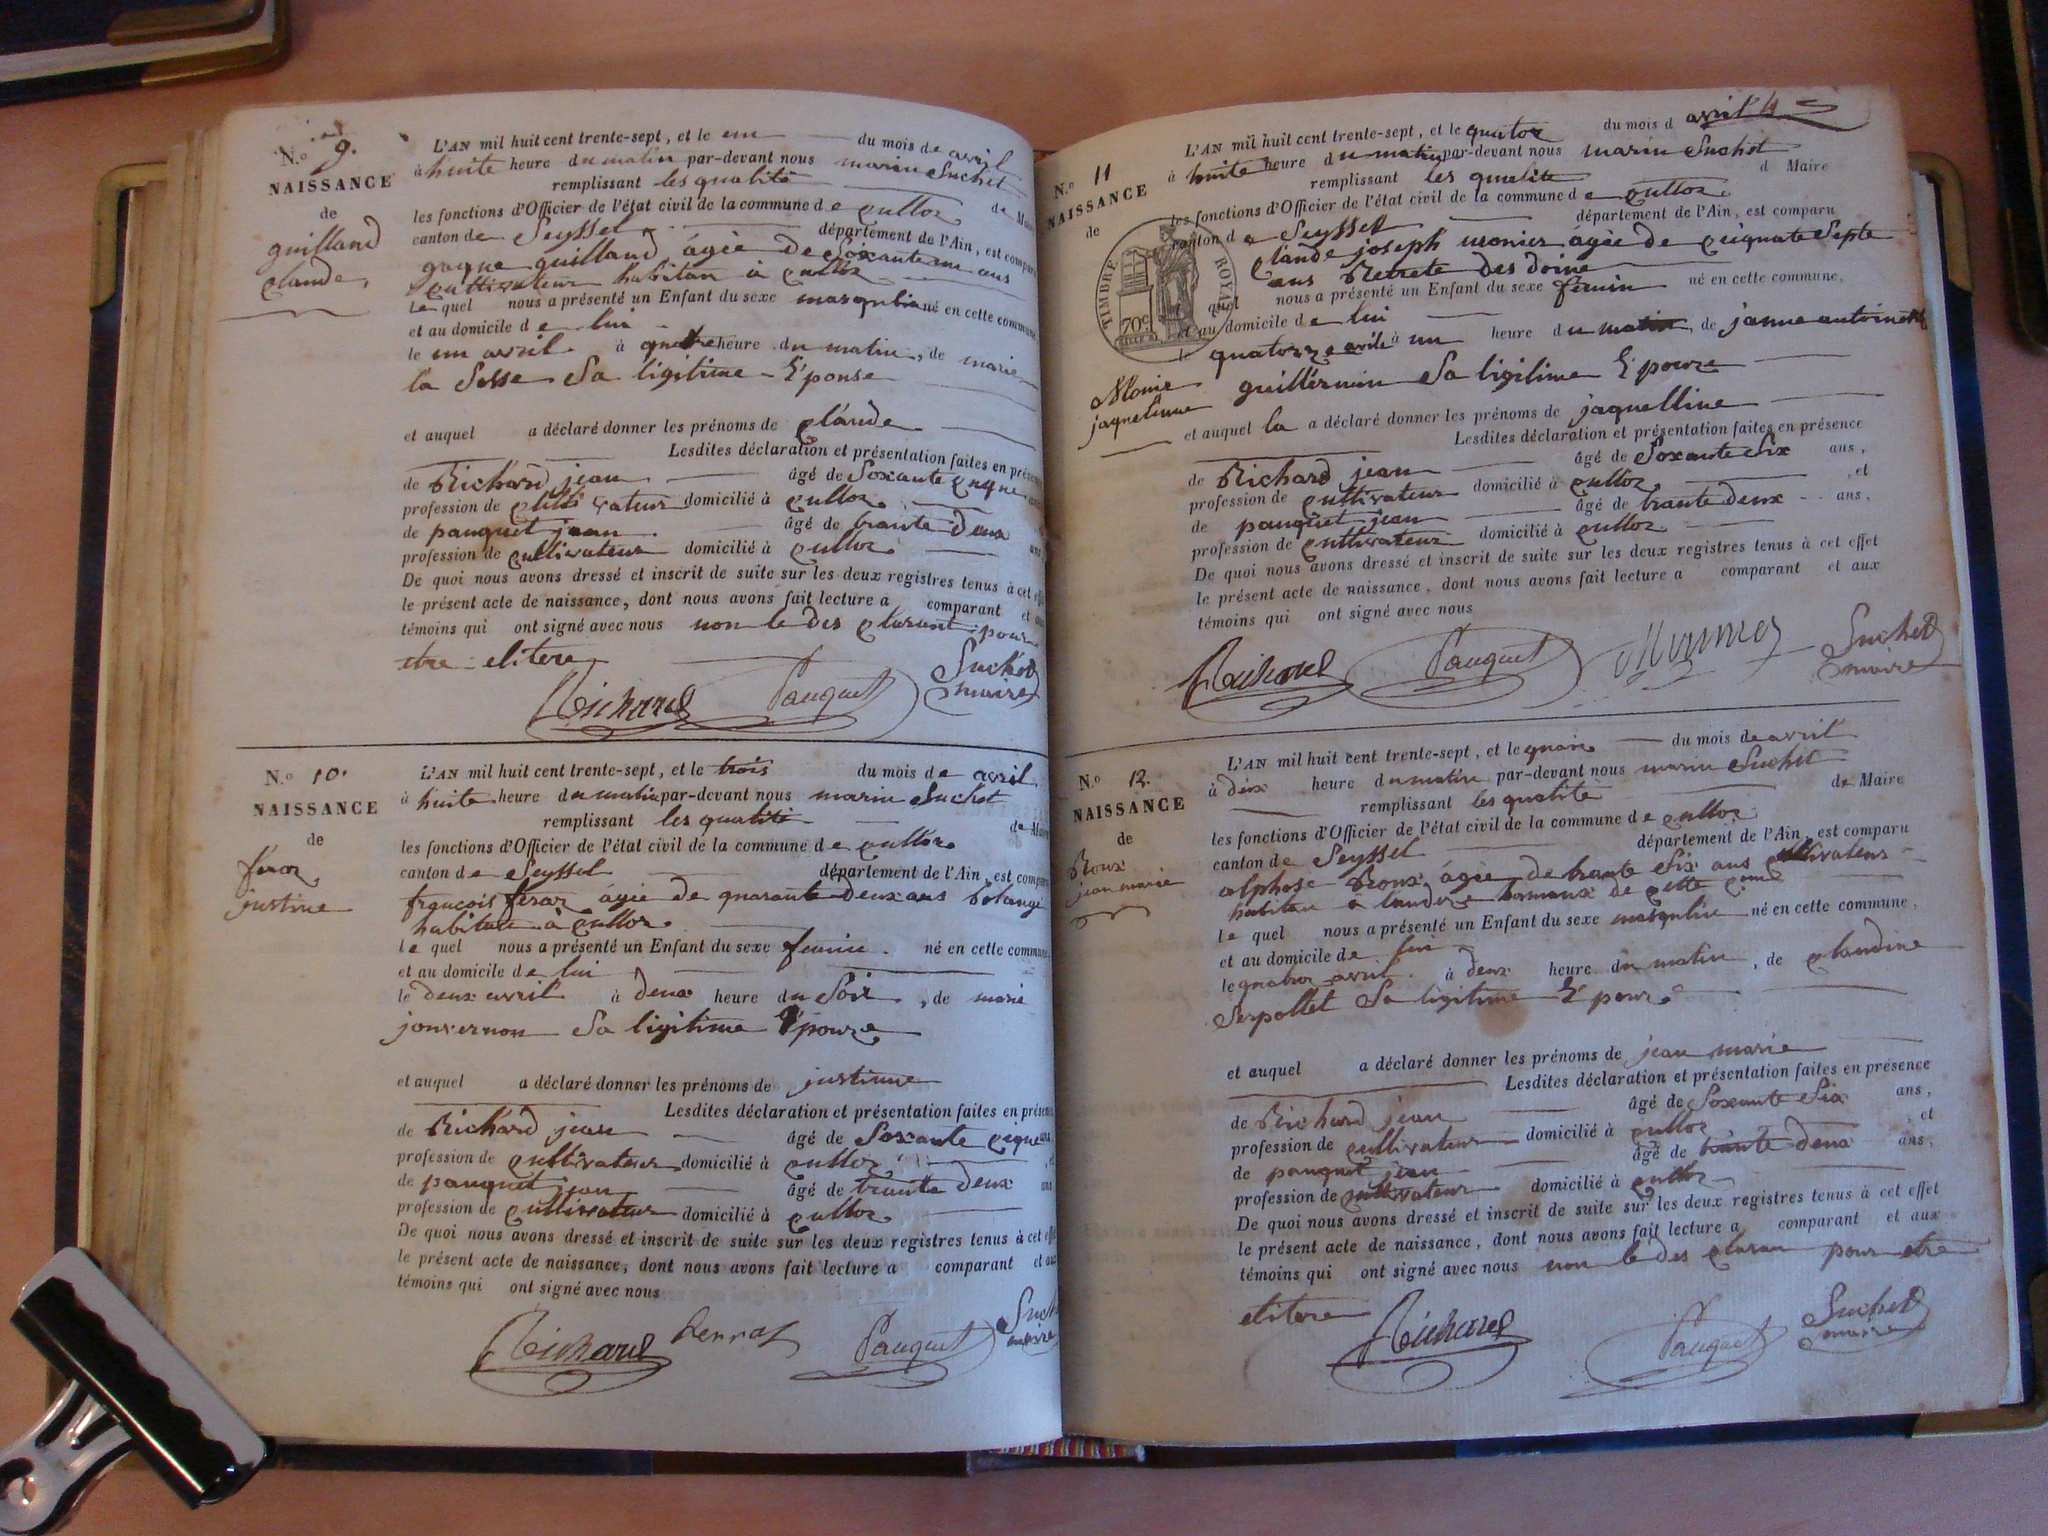 N.o 9.
NAISSANCE
de
guilland
claude,
L'AN mil huit cent trente-sept, et le un du mois de avril
à huite heure du matin par-devant nous marin Suchet
remplissant les qualité de Maire
les fonctions d'Officier de l'état civil de la commune de culloz
canton de Seyssel département de l'Ain, est comparu
guilland âgée de Soixante un ans
cultivateur habitan à culloz
Le quel nous a présenté un Enfant du sexe masqulin né en cette commune,
et au domicile de lui
le un avril à quatre heure du matin, de marie
la Sesse Sa ligitime Epouse
et auquel a déclaré donner les prénoms de claude
Lesdites déclaration et présentation faites en présence
de Richard jean âgé de Soxante cinqne ans
profession de cultivateur domicilié à culloz
de pauquet jean âgé de trante deux ans
profession de cultivateur domicilié à culloz
De quoi nous avons dressé et inscrit de suite sur les deux registres tenus à cet effet
le présent acte de naissance, dont nous avons fait lecture a comparant et aux
témoins qui ont signé avec nous non le des clarant pour
etre elitere
Richard Pauquet Suchet
maire
N.o 10.
NAISSANCE
de
féraz
justine
L'AN mil huit cent trente-sept, et le trois du mois de avril
à huite heure du matin par-devant nous marin Suchet
remplissant les qualité de Maire
les fonctions d'Officier de l'état civil de la commune de culloz
canton de Seyssel département de l'Ain, est comparu
françois féraz âgée de quarante deux ans bolangé
habitan à culloz
le quel nous a présenté un Enfant du sexe feminin né en cette commune,
et au domicile de lui
le deux avril à deux heure du Soir, de marie
jouvernon Sa ligitime Epouze
et auquel a déclaré donner les prénoms de justinne
Lesdites déclaration et présentation faites en présence
de Richard jean âgé de Soxante cinque ans
profession de cultivateur domicilié à culloz
de pauquet jean âgé de trante deux ans
profession de cultivateur domicilié à culloz
De quoi nous avons dressé et inscrit de suite sur les deux registres tenus à cet effet
le présent acte de naissance, dont nous avons fait lecture a comparant et aux
témoins qui ont signé avec nous
Richard Ferraz Pauquet Suchet
maire
N.o 11
NAISSANCE
de
TIMBRE ROYAL
70c
Monie
jaqueline
L'AN mil huit cent trente-sept, et le quatoz du mois d avril 4
à huite heure du matin par-devant nous marin Suchet
remplissant les qualite d Maire
les fonctions d'Officier de l'état civil de la commune de culloz
canton de Seyssel département de l'Ain, est comparu
Claude joseph monier âgée de ciquate Septe
ans Retrete des doine
quel nous a présenté un Enfant du sexe féminin né en cette commune,
et au domicile de lui
le quatorze avile à un heure du matin, de janne antoinette
guillérmin Sa ligitime Epouze
et auquel la a déclaré donner les prénoms de jaquelline
Lesdites déclaration et présentation faites en présence
de Richard jean âgé de Soxante Six ans,
profession de cultivateur domicilié à culloz, et
de pauquet jean âgé de trante deux ans,
profession de cultivateur domicilié à culloz
De quoi nous avons dressé et inscrit de suite sur les deux registres tenus à cet effet
le présent acte de naissance, dont nous avons fait lecture a comparant et aux
témoins qui ont signé avec nous
Richard Pauquet Monnier Suchet
maire
N.o 12.
NAISSANCE
de
Roux
jean marie
L'AN mil huit cent trente-sept, et le du mois de avril
à deux heure du matin par-devant nous marin Suchet
remplissant les qualité de Maire
les fonctions d'Officier de l'état civil de la commune de culloz
canton de Seyssel département de l'Ain, est comparu
alphose Roux âgée de trante Six ans cultivateur
habitan a landeze hamaux de cette
le quel nous a présenté un Enfant du sexe masqulin né en cette commune,
et au domicile de lui
le quatroz avril à deux heure du matin, de claudine
Serpollet Sa ligitime Epouze
et auquel a déclaré donner les prénoms de jean marie
Lesdites déclaration et présentation faites en présence
de Richard jean âgé de Soxante Six ans,
profession de cultivateur domicilié à culloz, et
de pauquet jean âgé de trante deux ans,
profession de cultivateur domicilié à culloz
De quoi nous avons dressé et inscrit de suite sur les deux registres tenus à cet effet
le présent acte de naissance, dont nous avons fait lecture a comparant et aux
témoins qui ont signé avec nous non le des claran pour etre
elitere
Richard Pauquet Suchet
maire